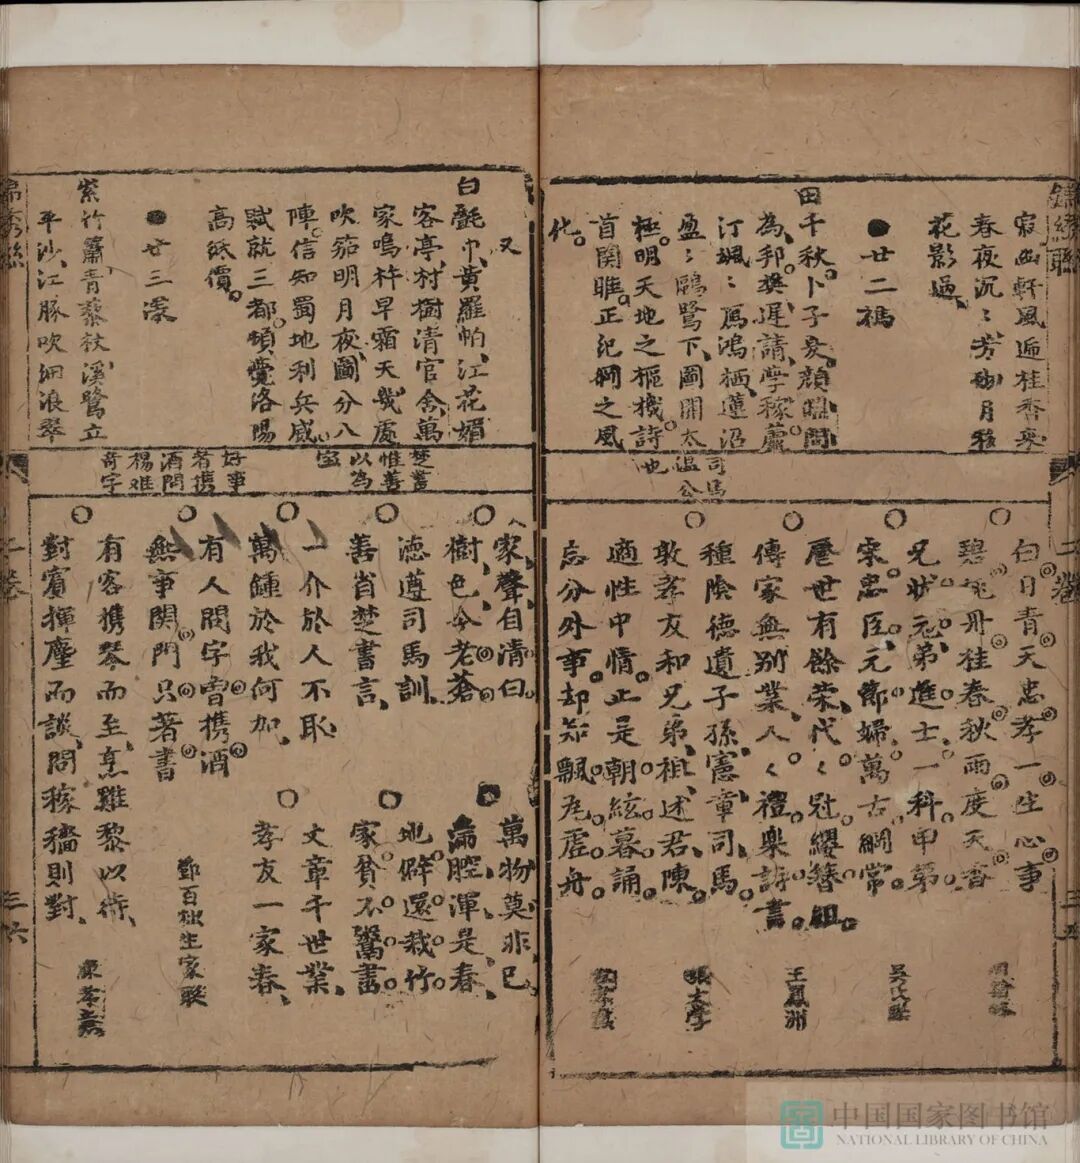 寂幽軒風逅桂香來
春夜沉〻芳砌月移
花影過
●廿二禡
田千秋卜子夏顔淵問
為邦樊遲請學稼蕭
汀颯〻鴈鴻栖蓮沼
盈〻鷗鷺下圖開太
極明天地之樞機詩
首関雎正紀綱之風
化
司馬
温公
也
白日青天忠孝一生心事
碧兔丹桂春秋兩度天香
兄狀元弟進士一科甲第
宋忠臣元節婦萬古綱常
歷世有餘榮代〻冠纓簪組
傳家無別業人〻禮樂詩書
種陰德遺子孫憲章司馬
敦孝友和兄弟祖述君陳
適性中情止是朝絃暮誦
忘分外事却如飄瓦虛舟
吳氏聯
王鳳洲
張太學
二卷
又
白氈巾黃羅帕江花媚
客亭村樹清官舍萬
家鳴杵早霜天幾處
吹茄明月夜圖分八
陣信知蜀地利兵威
賦就三都頓覺洛陽
高紙價
●廿三漾
紫竹簫青藜杖溪鷺立
平沙江豚吹細浪翠
楚書
惟善
以為
宝
好事
者携
酒問
楊难
奇字
家聲自清白
萬物莫非已
樹色令老蒼
滿腔渾是春
德遵司馬訓
地僻還栽竹
善省楚書言
家貧不鬻書
一介於人不恥
文章千世業
萬鍾於我何加
孝友一家春
有人問字曾携酒
無事関門只著書
鄧百拙生家联
有客携琴而至烹雞黎以待
對賓揮麈而談問稼穡則對
二卷
三六
中国国家图书馆
NATIONAL LIBRARY OF CHINA